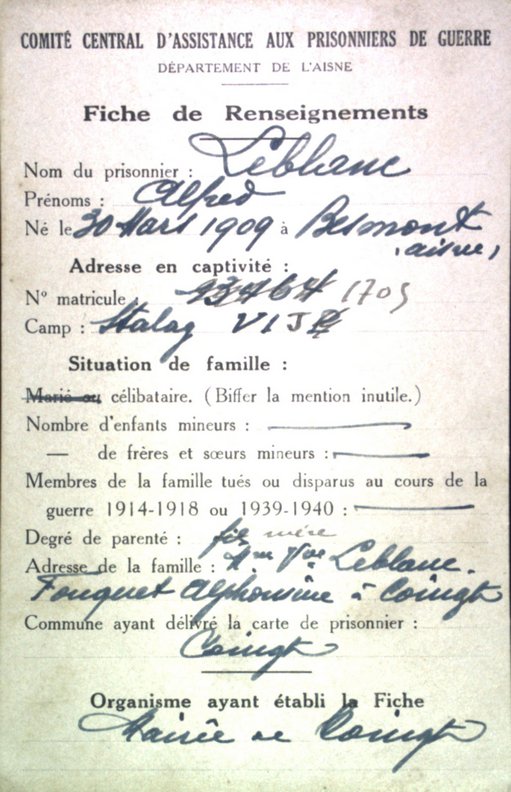 COMITÉ CENTRAL D'ASSISTANCE AUX PRISONNIERS DE GUERRE
DÉPARTEMENT DE L'AISNE
Fiche de Renseignements
Nom du prisonnier : Leblanc
Prénoms : Alfred
Né le 30 Mars 1909 à Besmont
(aisne)
Adresse en captivité :
N° matricule : 1705
Camp : Stalag VI J
Situation de famille :
Marié ou célibataire. (Biffer la mention inutile.)
Nombre d'enfants mineurs :
— de frères et sœurs mineurs :
Membres de la famille tués ou disparus au cours de la
guerre 1914-1918 ou 1939-1940 :
Degré de parenté : fils mère
Adresse de la famille : Mme Vve Leblanc.
Fouquet Alphonsine à Coingt
Commune ayant délivré la carte de prisonnier :
Coingt
Organisme ayant établi la Fiche
Mairie de Coingt